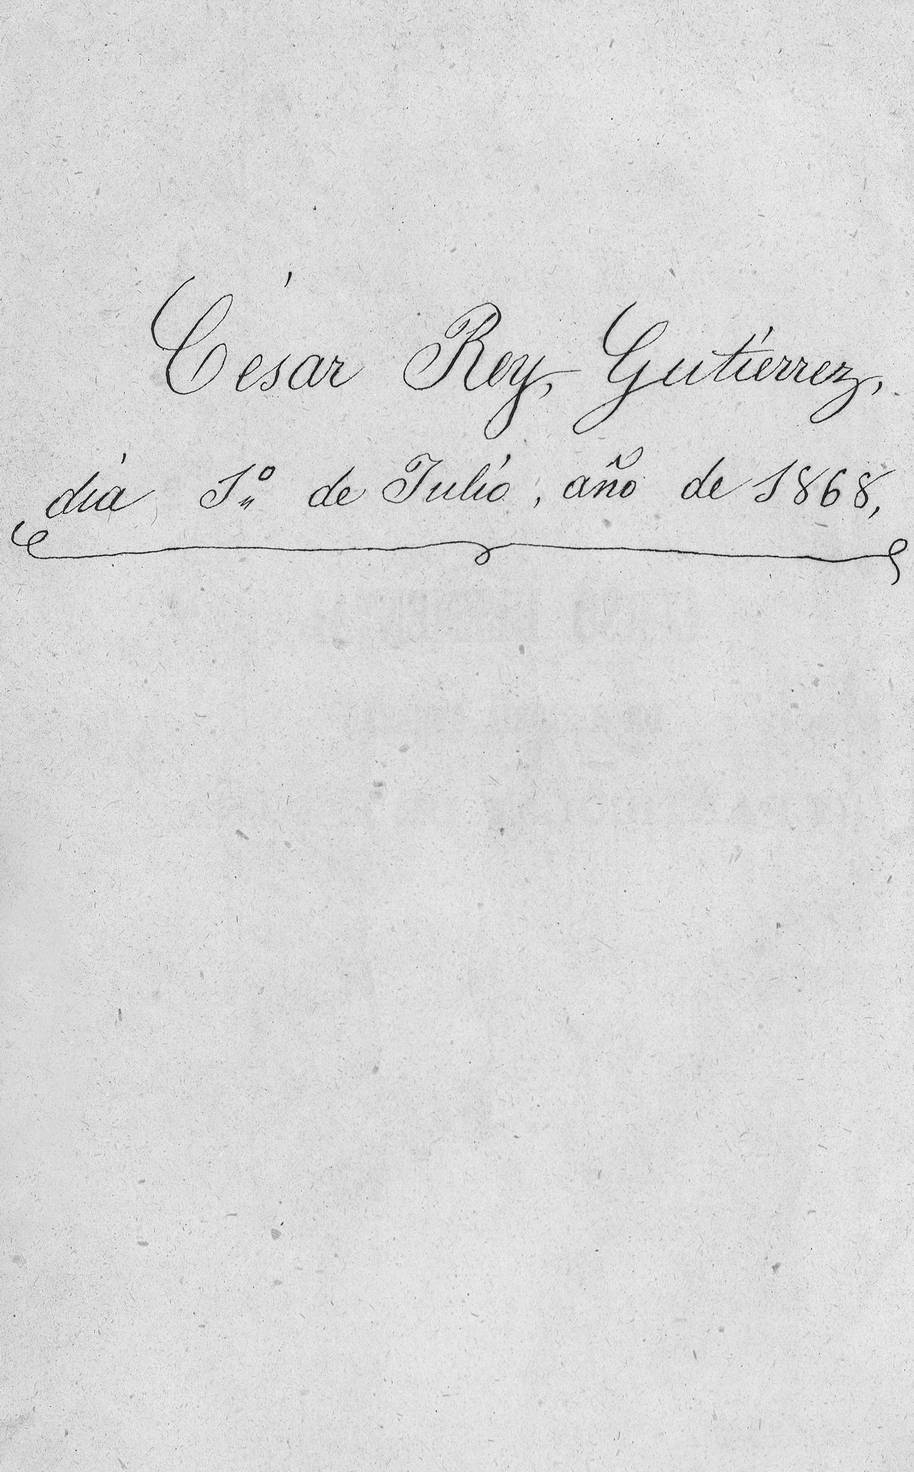 César Rey Gutierrez,
día 1º de Julio, año de 1868,